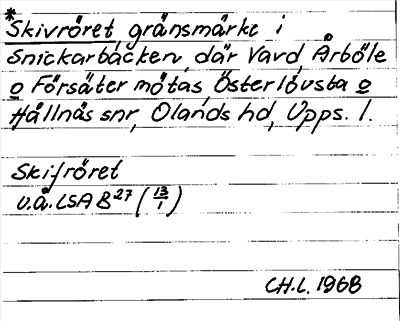 *Skivröret, gränsmärke i
Snickarbäcken, där Vavd, Årböle
o Försäter mötas, Österlövsta o
Hållnäs snr, Olands hd, Upps. l.
Skifröret
u.å. LSA B 27 (13/1)
CH.L. 1968